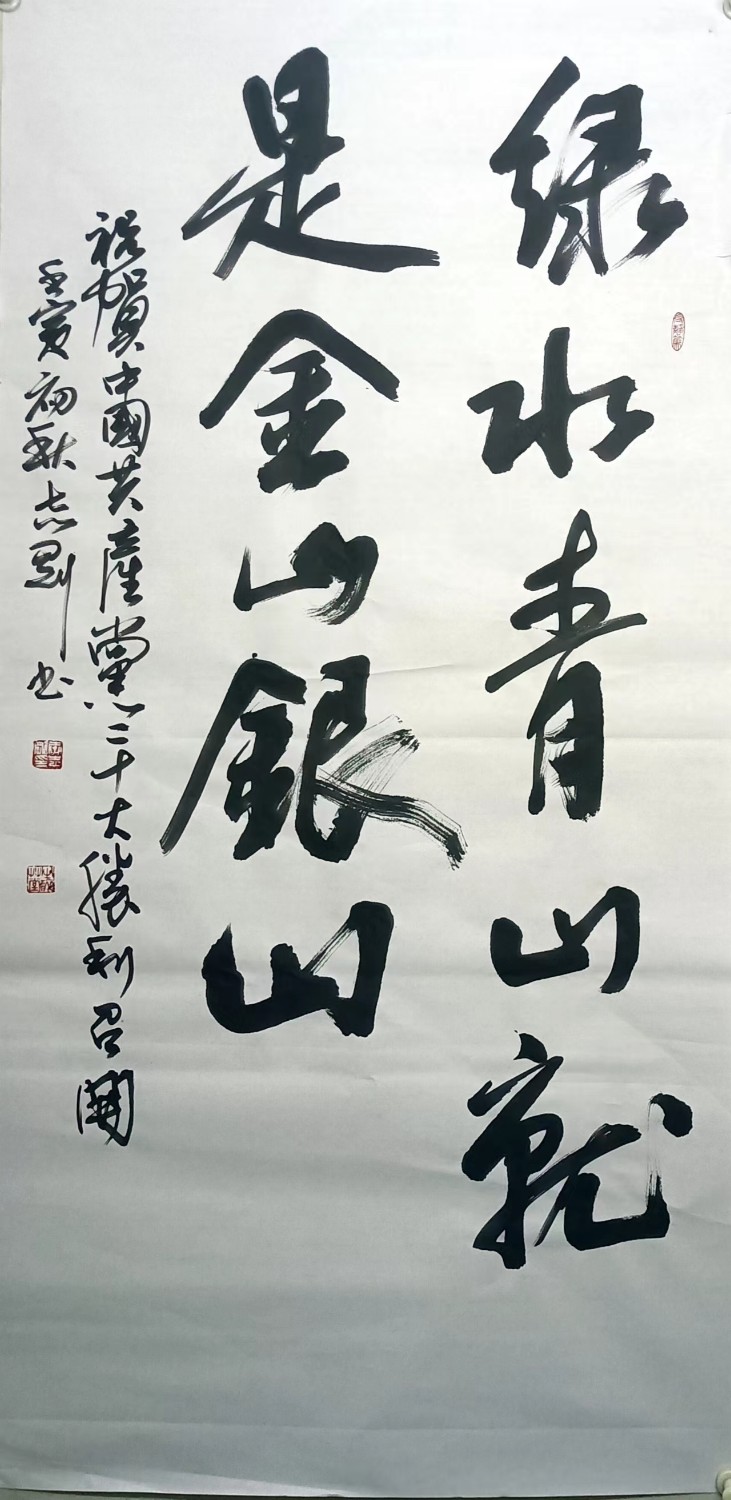 绿水青山就
是金山銀山
祝賀中國共産黨二十大勝利召開
壬寅初秋志刚书